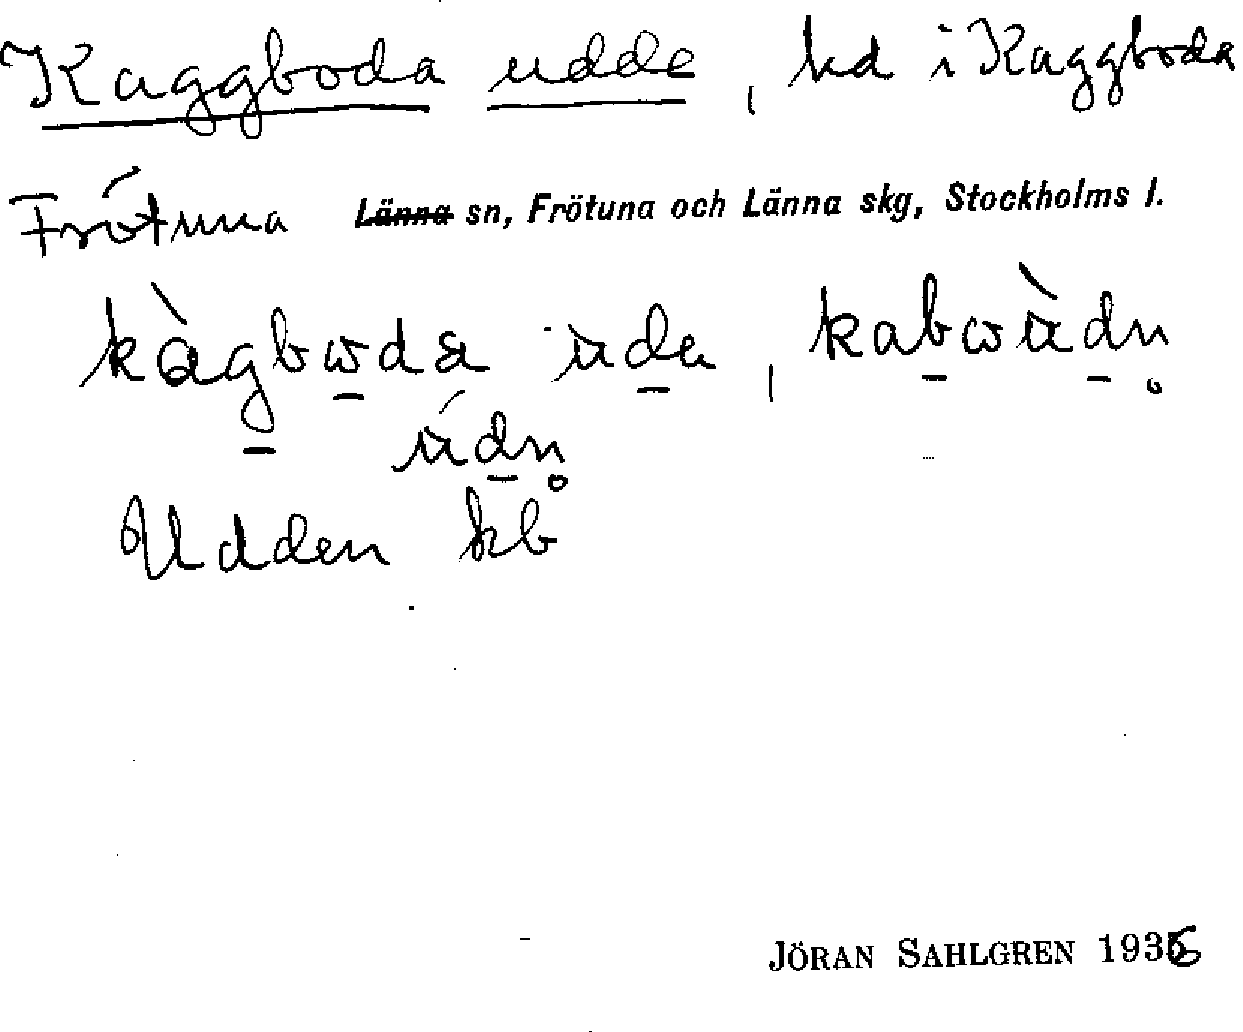 Kaggboda udde, hd i Kaggboda
Frötuna Länna sn, Frötuna och Länna skg, Stockholms l.
kàgbωda ùda, kabωùdn̥
údn̥
Udden kb
JÖRAN SAHLGREN 1936